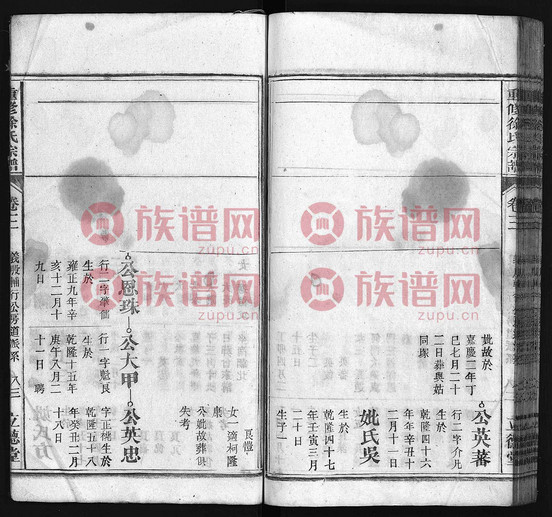 重修徐氏宗譜
卷三
立德堂
妣故於
嘉慶二年丁
巳七月二十
二日葬與姑
同塚
公英蕃
行二字介凡
生於
乾隆四十六
年辛丑十
二月十一日
妣氏吳
生於
乾隆四十七
年壬寅三月
二十日
生子一
良檀
女一適柯隆
康
公妣故葬俱
失考
公恩珠
行二字華儒
生於
雍正九年辛
亥十二月十
九日
公大甲
行一字魁良
生於
乾隆十五年
庚午八月二
十一日 聘
公英忠
字正標生於
乾隆五十八
年癸丑二月
十八日
妣氏方
重修徐氏宗譜
卷三
義股輔行公房道派系
八三
立德堂
族谱网
zupu.cn
族谱网
zupu.cn
族谱网
zupu.cn
族谱网
zupu.cn